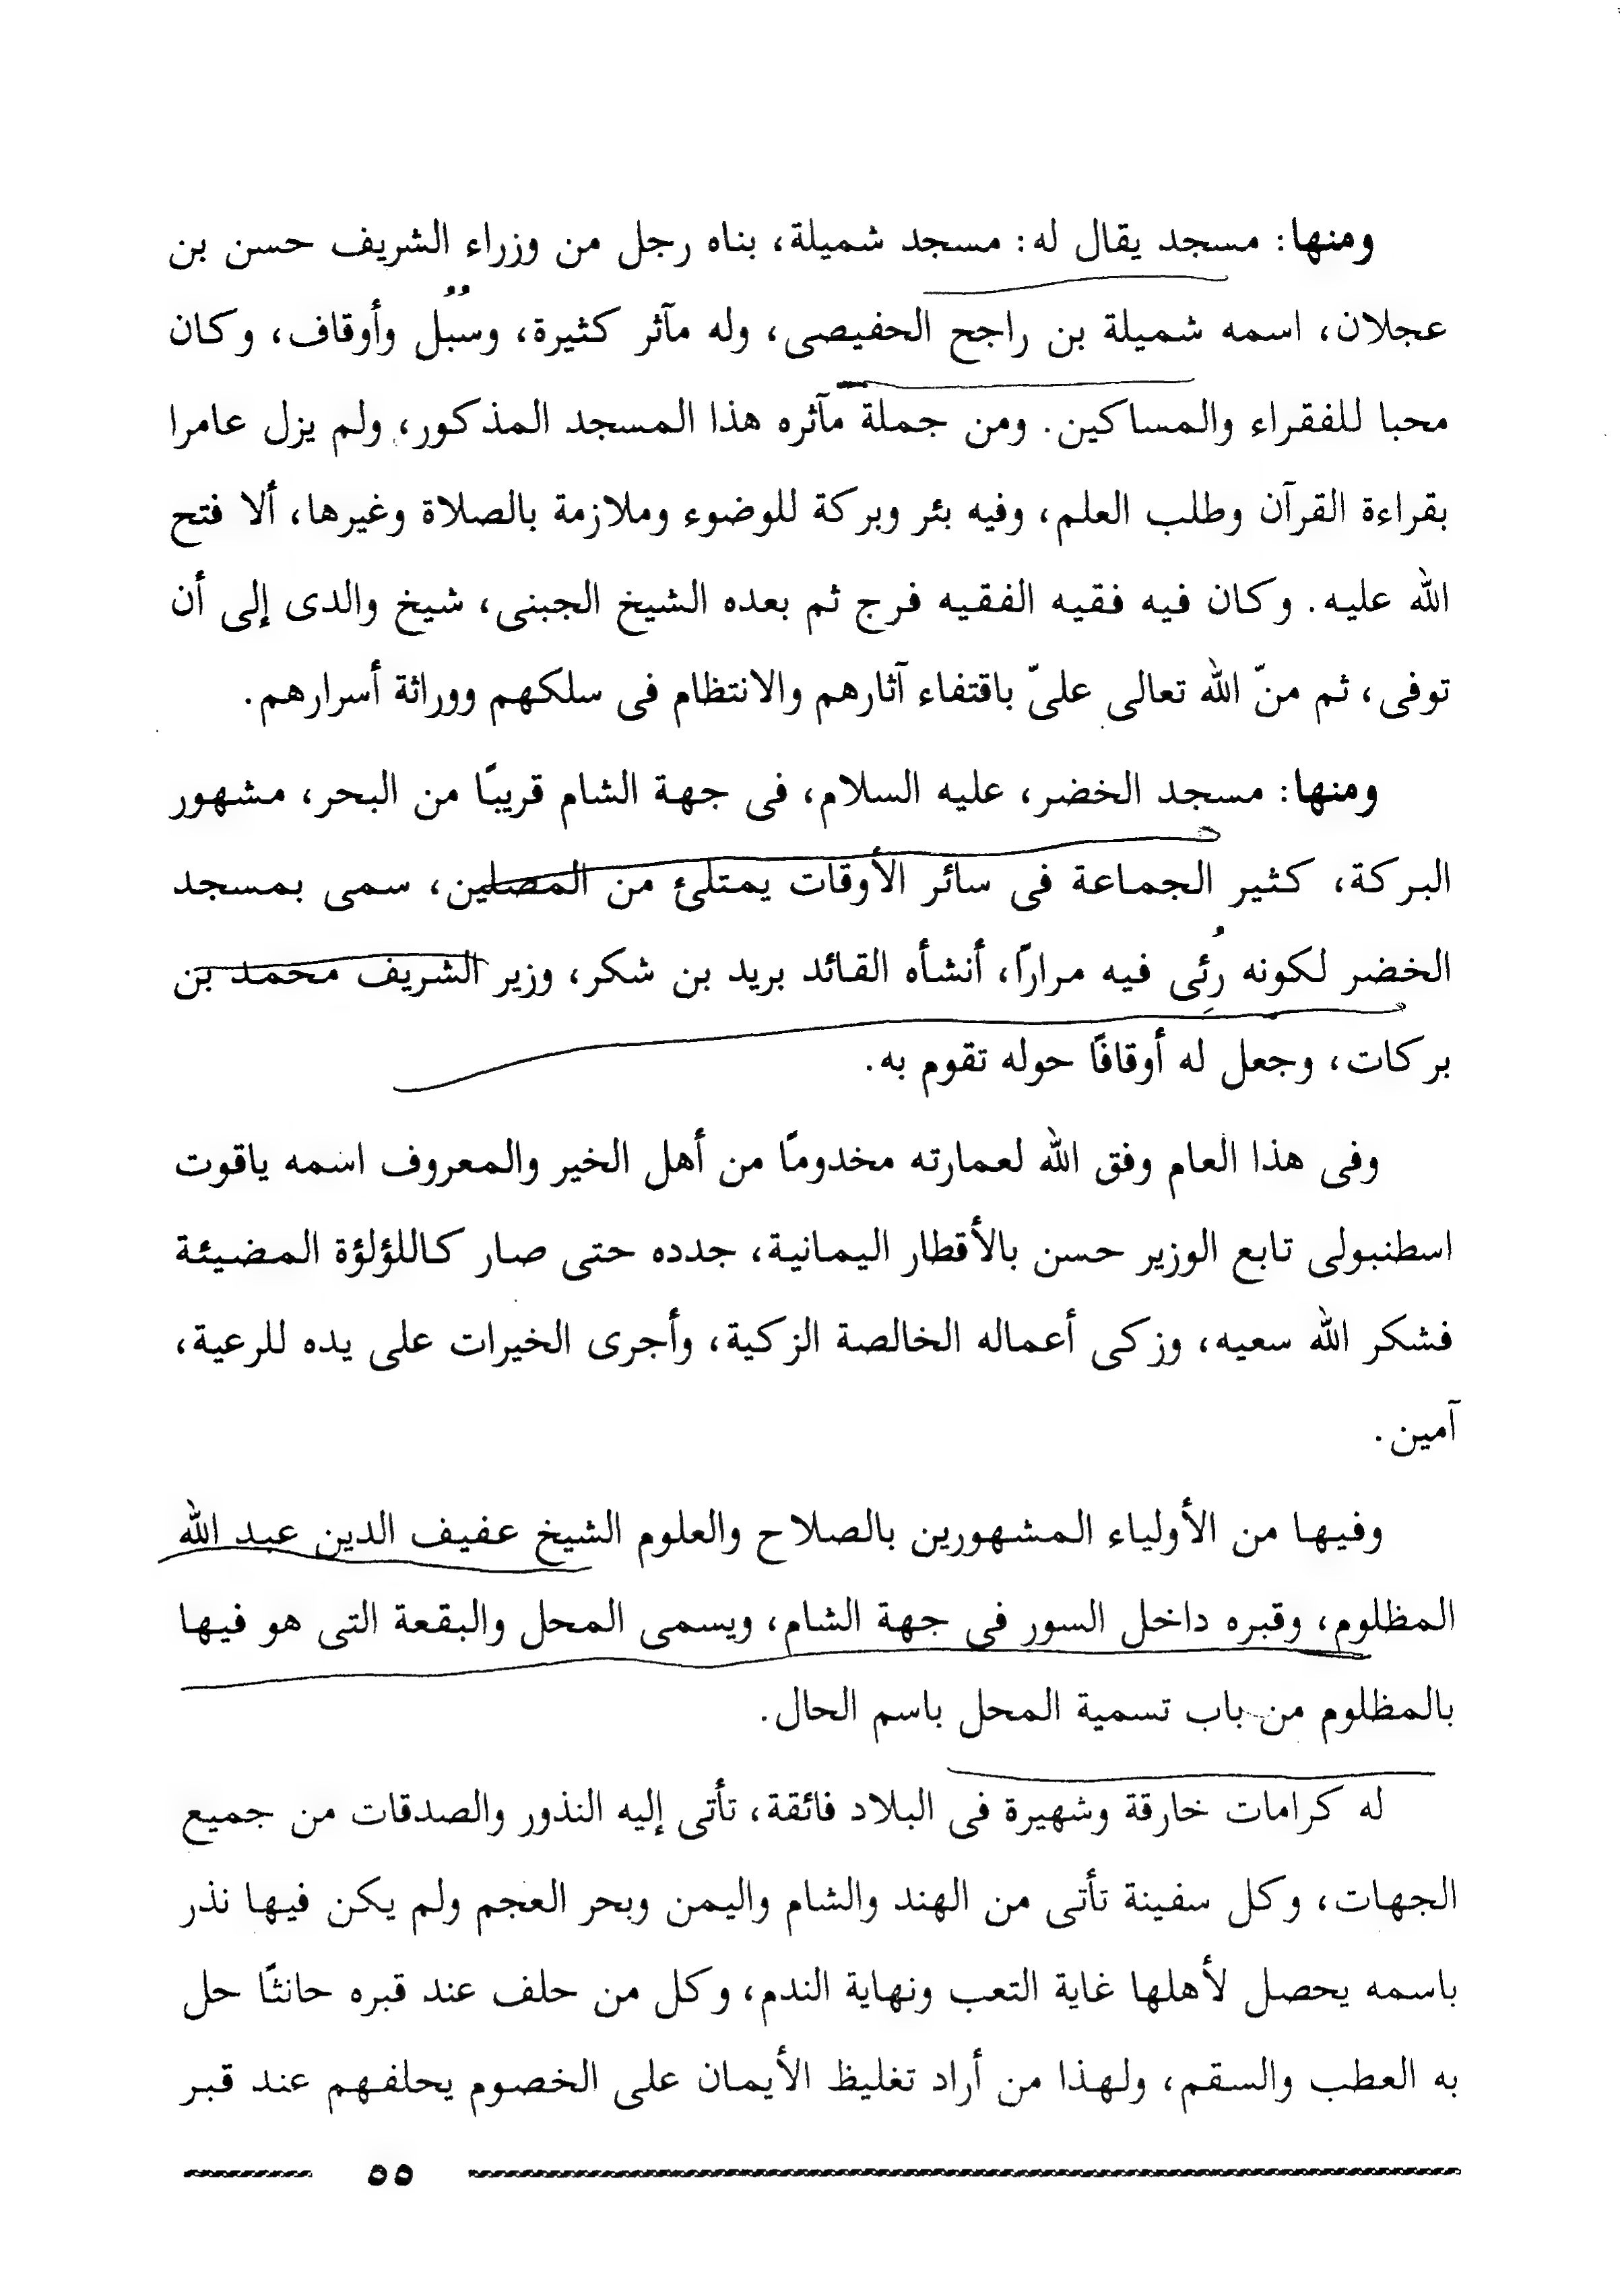 ومنها: مسجد يقال له: مسجد شميلة، بناه رجل من وزراء الشريف حسن بن
عجلان، اسمه شميلة بن راجح الحفيصى، وله مآثر كثيرة، وسُبُل وأوقاف، وكان
محبا للفقراء والمساكين. ومن جملة مآثره هذا المسجد المذكور، ولم يزل عامرا
بقراءة القرآن وطلب العلم، وفيه بئر وبركة للوضوء وملازمة بالصلاة وغيرها، ألا فتح
الله عليه. وكان فيه فقيه الفقيه فرج ثم بعده الشيخ الجبنى، شيخ والدى إلى أن
توفى، ثم منّ الله تعالى علىّ باقتفاء آثارهم والانتظام فى سلكهم ووراثة أسرارهم.
ومنها: مسجد الخضر، عليه السلام، فى جهة الشام قريبًا من البحر، مشهور
البركة، كثير الجماعة فى سائر الأوقات يمتلئ من المصلين، سمى بمسجد
الخضر لكونه رُئِى فيه مرارًا، أنشأه القائد بريد بن شكر، وزير الشريف محمد بن
بركات، وجعل له أوقافًا حوله تقوم به.
وفى هذا العام وفق الله لعمارته مخدومًا من أهل الخير والمعروف اسمه ياقوت
اسطنبولى تابع الوزير حسن بالأقطار اليمانية، جدده حتى صار كاللؤلؤة المضيئة
فشكر الله سعيه، وزكى أعماله الخالصة الزكية، وأجرى الخيرات على يده للرعية،
آمين.
وفيها من الأولياء المشهورين بالصلاح والعلوم الشيخ عفيف الدين عبد الله
المظلوم، وقبره داخل السور فى جهة الشام، ويسمى المحل والبقعة التى هو فيها
بالمظلوم من باب تسمية المحل باسم الحال.
له كرامات خارقة وشهيرة فى البلاد فائقة، تأتى إليه النذور والصدقات من جميع
الجهات، وكل سفينة تأتى من الهند والشام واليمن وبحر العجم ولم يكن فيها نذر
باسمه يحصل لأهلها غاية التعب ونهاية الندم، وكل من حلف عند قبره حانثًا حل
به العطب والسقم، ولهذا من أراد تغليظ الأيمان على الخصوم يحلفهم عند قبر
٥٥